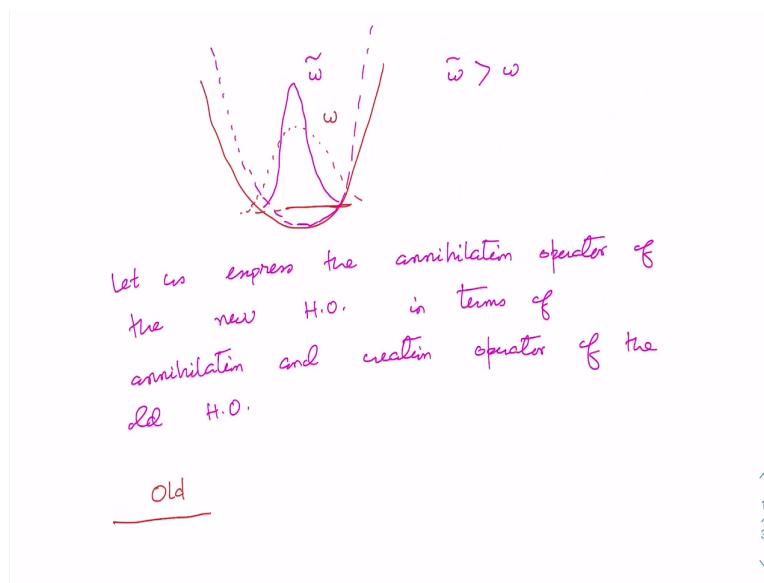 ω̃
ω̃ > ω
ω
Let us express the annihilation operator of
the new H.O. in terms of
annihilation and creation operator of the
old H.O.
Old